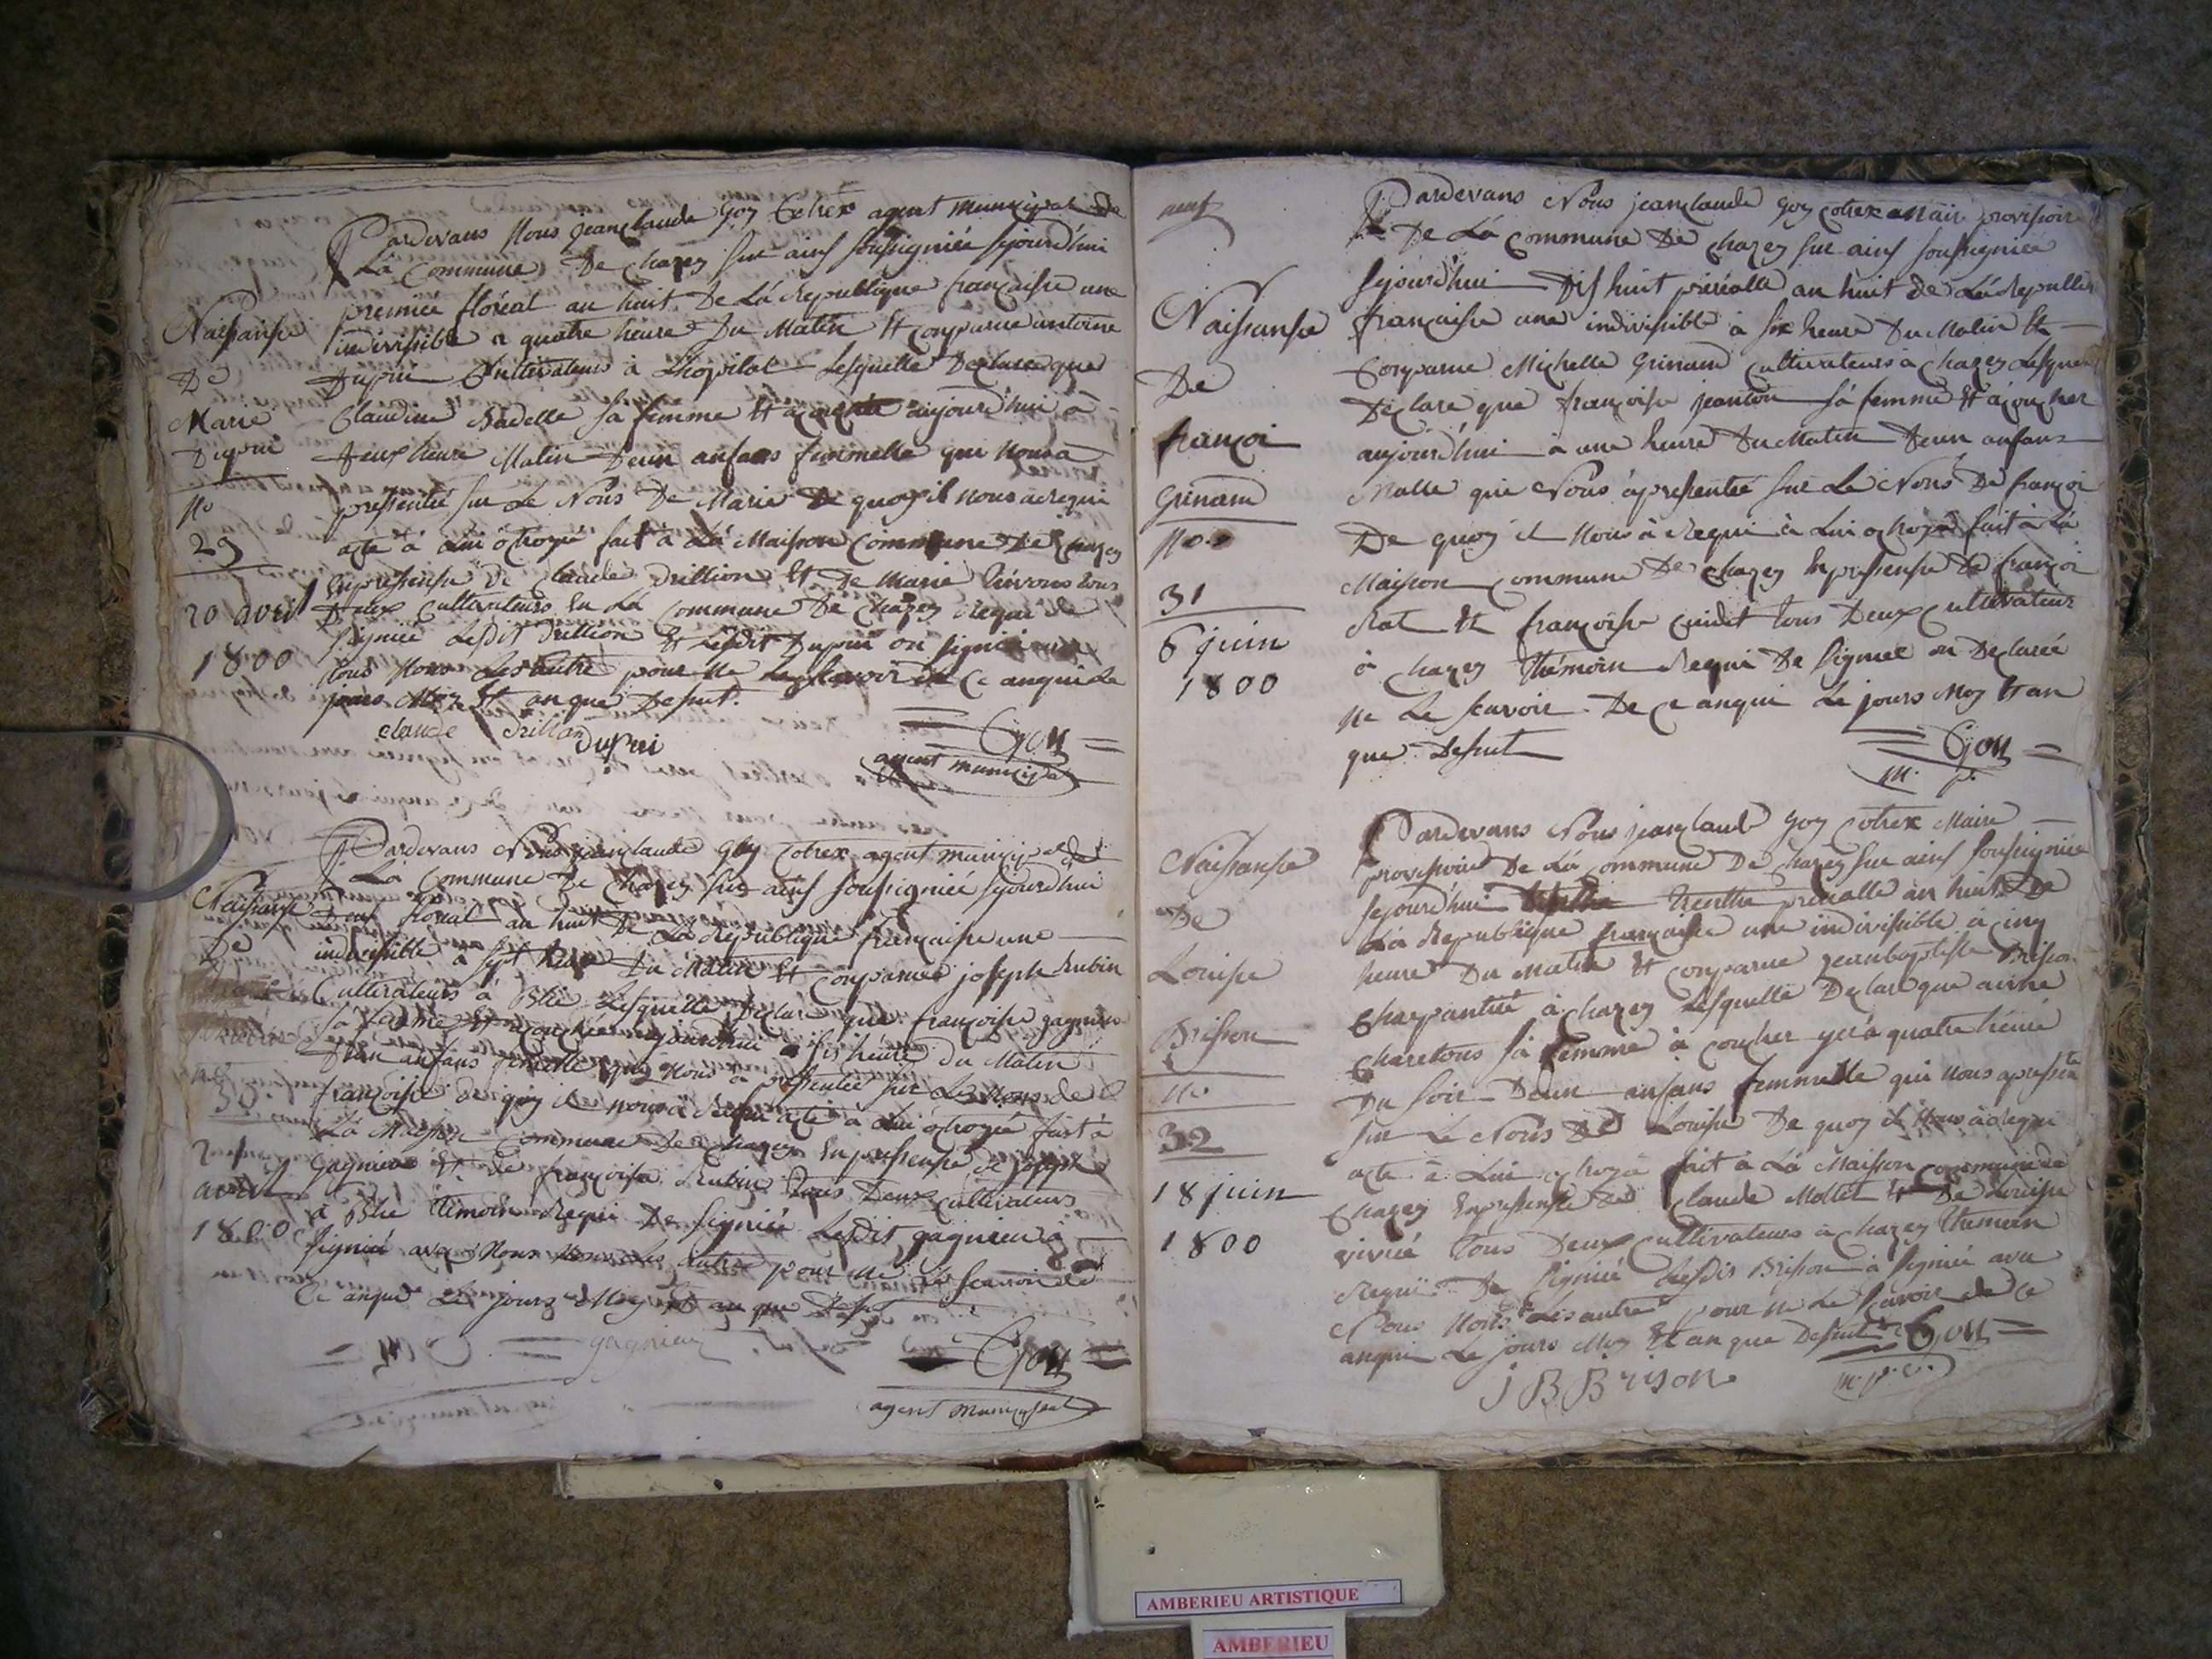 Naissanse
De
Marie
Dupui
No
29
20 avril
1800
Pardevans Nous jeanclaude Goy Cotrex agent municipal de
La Commune De Chazey sur ains soussigniée sejourd'hui
premiée floréal an huit De La Republique française une
indivisible a quatre heure Du Matin Et conparue antoine
Dupui Cultivateurs à Lhopital Lesquelle Declare que
Claudine Badelle sa femme Et acouchée aujourd'hui à
deux heure Matin Deun anfans femmelle qui Nous a
pressentée sur Le Nons De Marie De quoy il nous a requi
acte à Lui otroyée fait à La Maison Commune De Chazey
Enpressense De claude Drillion Et De Marie tous
Deux Cultivateurs En La Commune De Chazey Requi de
signiée Lesdit Drillion Et Lesdit Dupui on signiée avec
Nous Les autre pour Ne Le scavoir De Ce anqui Le
jours Moy Et an que Desut.
claude drillon
dupui
Goy
agent municipal
Naissanse
De
30
21
avril
1800
Pardevans Nous jeanclaude Goy Cotrex agent municipal de
La Commune De Chazey sur ains soussigniée sejourd'hui
Deux floréal an huit De La Republique française une
indivisible à sept heure Du Matin Et conparue joseph Rubin
Cultivateurs à Blie Lesquelle Declare que françoise gagnieu
sa femme Et acouchée aujourd'hui a sis heure Du Matin
Deun anfans femelle qui Nous a pressentée sur Le Nons de
françoise De quoy il nous à requi acte à Lui otroyée fait à
La Maison Commune De Chazey Enpressense De joseph
Gagnieu Et De françoise Rubin tous Deux cultivateurs
à Blie témoin Requi De signiée Lesdit gagnieu à
signiée avec Nous Les autre pour Ne Le scavoir De
Ce anqui Le jours Moy Et an que Desut
gagnieu
Goy
agent municipal
neuf
Naissanse
De
françoi
Grinand
No
31
6 juin
1800
Pardevans Nous jeanclaude Goy cotrex maire provisoire
De La Commune De Chazey sur ains soussigniée
sejourd'hui Dis huit preriale an huit De La Republique
française une indivisible à six heure Du Matin Et
Conparue Michelle Grinand Cultivateurs a Chazey Lesquelle
Declare que françoise jeanton sa femme Et acoucher
aujourd'hui à une heure Du Matin Deun anfans
Malle que Nous a pressentée sur Le Nons De françoi
De quoy il Nous à Requi à Lui otroyée fait à La
Maison commune De Chazey Enpressense De françoi
Rat Et françoise cuidet tous Deux cultivateur
à Chazey thémoin Requi De signiee on Declarée
Ne Le scavoir De Ce anqui Le jours Moy Et an
que Desut
Goy
m. p.
Naissanse
De
Louise
Brisson
No
32
18 juin
1800
Pardevans Nous jeanclaude Goy cotrex Maire
provisoire De La Commune De Chazey sur ains soussigniée
sejourd'hui trentte preriale an huit De
La Republique française une indivisible à cinq
heure Du Matin Et conparue jeanbaptiste Brisson
Charpantier à Chazey Lesquelle Declare que aimé
Charetons sa femme à coucher yer à quatre heure
Du soir Deun anfans femmelle qui nous a pressente
sur Le Nons De Louise De quoy il Nous à requi
acte à Lui otroyée fait à La Maison commune de
Chazey Enpressense De Claude Mollet Et De Louise
tous Deux Cultivateurs à Chazey themoin
Requi De signiée Lesdis Brisson à signiée avec
Nous Les autre pour Ne Le scavoir de Ce
anqui Le jours Moy Et an que Desut
Goy
J B Brison
AMBERIEU ARTISTIQUE
AMBERIEU